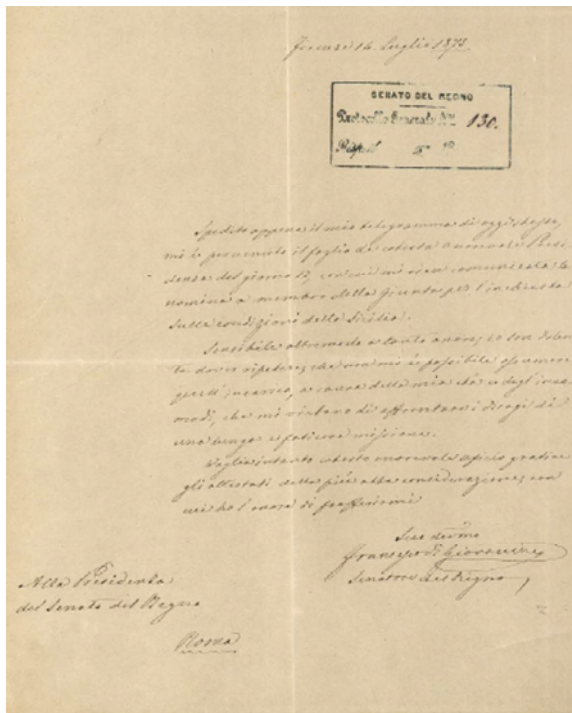 Firenze 14. Luglio 1875.
SENATO DEL REGNO
Protocollo Generale N.º 130.
Spedito appena il mio telegramma di oggi stesso,
mi è pervenuto il foglio di cotesta onorevole Presi
denza del giorno 12, con cui mi vien comunicata la
nomina a membro della Giunta per l'inchiesta
sulle condizioni della Sicilia.
Sensibile oltremodo a tanto onore, io son dolen
te dover ripetere, che non mi è possibile assumere
quell'incarico, a causa della mia età e degl'inco
modi, che mi vietano di affrontare i disagi di
una lunga e faticosa missione.
Voglia intanto cotesto onorevole ufficio gradire
gli attestati della più alta considerazione, con
cui ho l'onore di profferirmi
Suo devmo
Francesco di Giovanni
Senatore del Regno
Alla Presidenza
del Senato del Regno
Roma